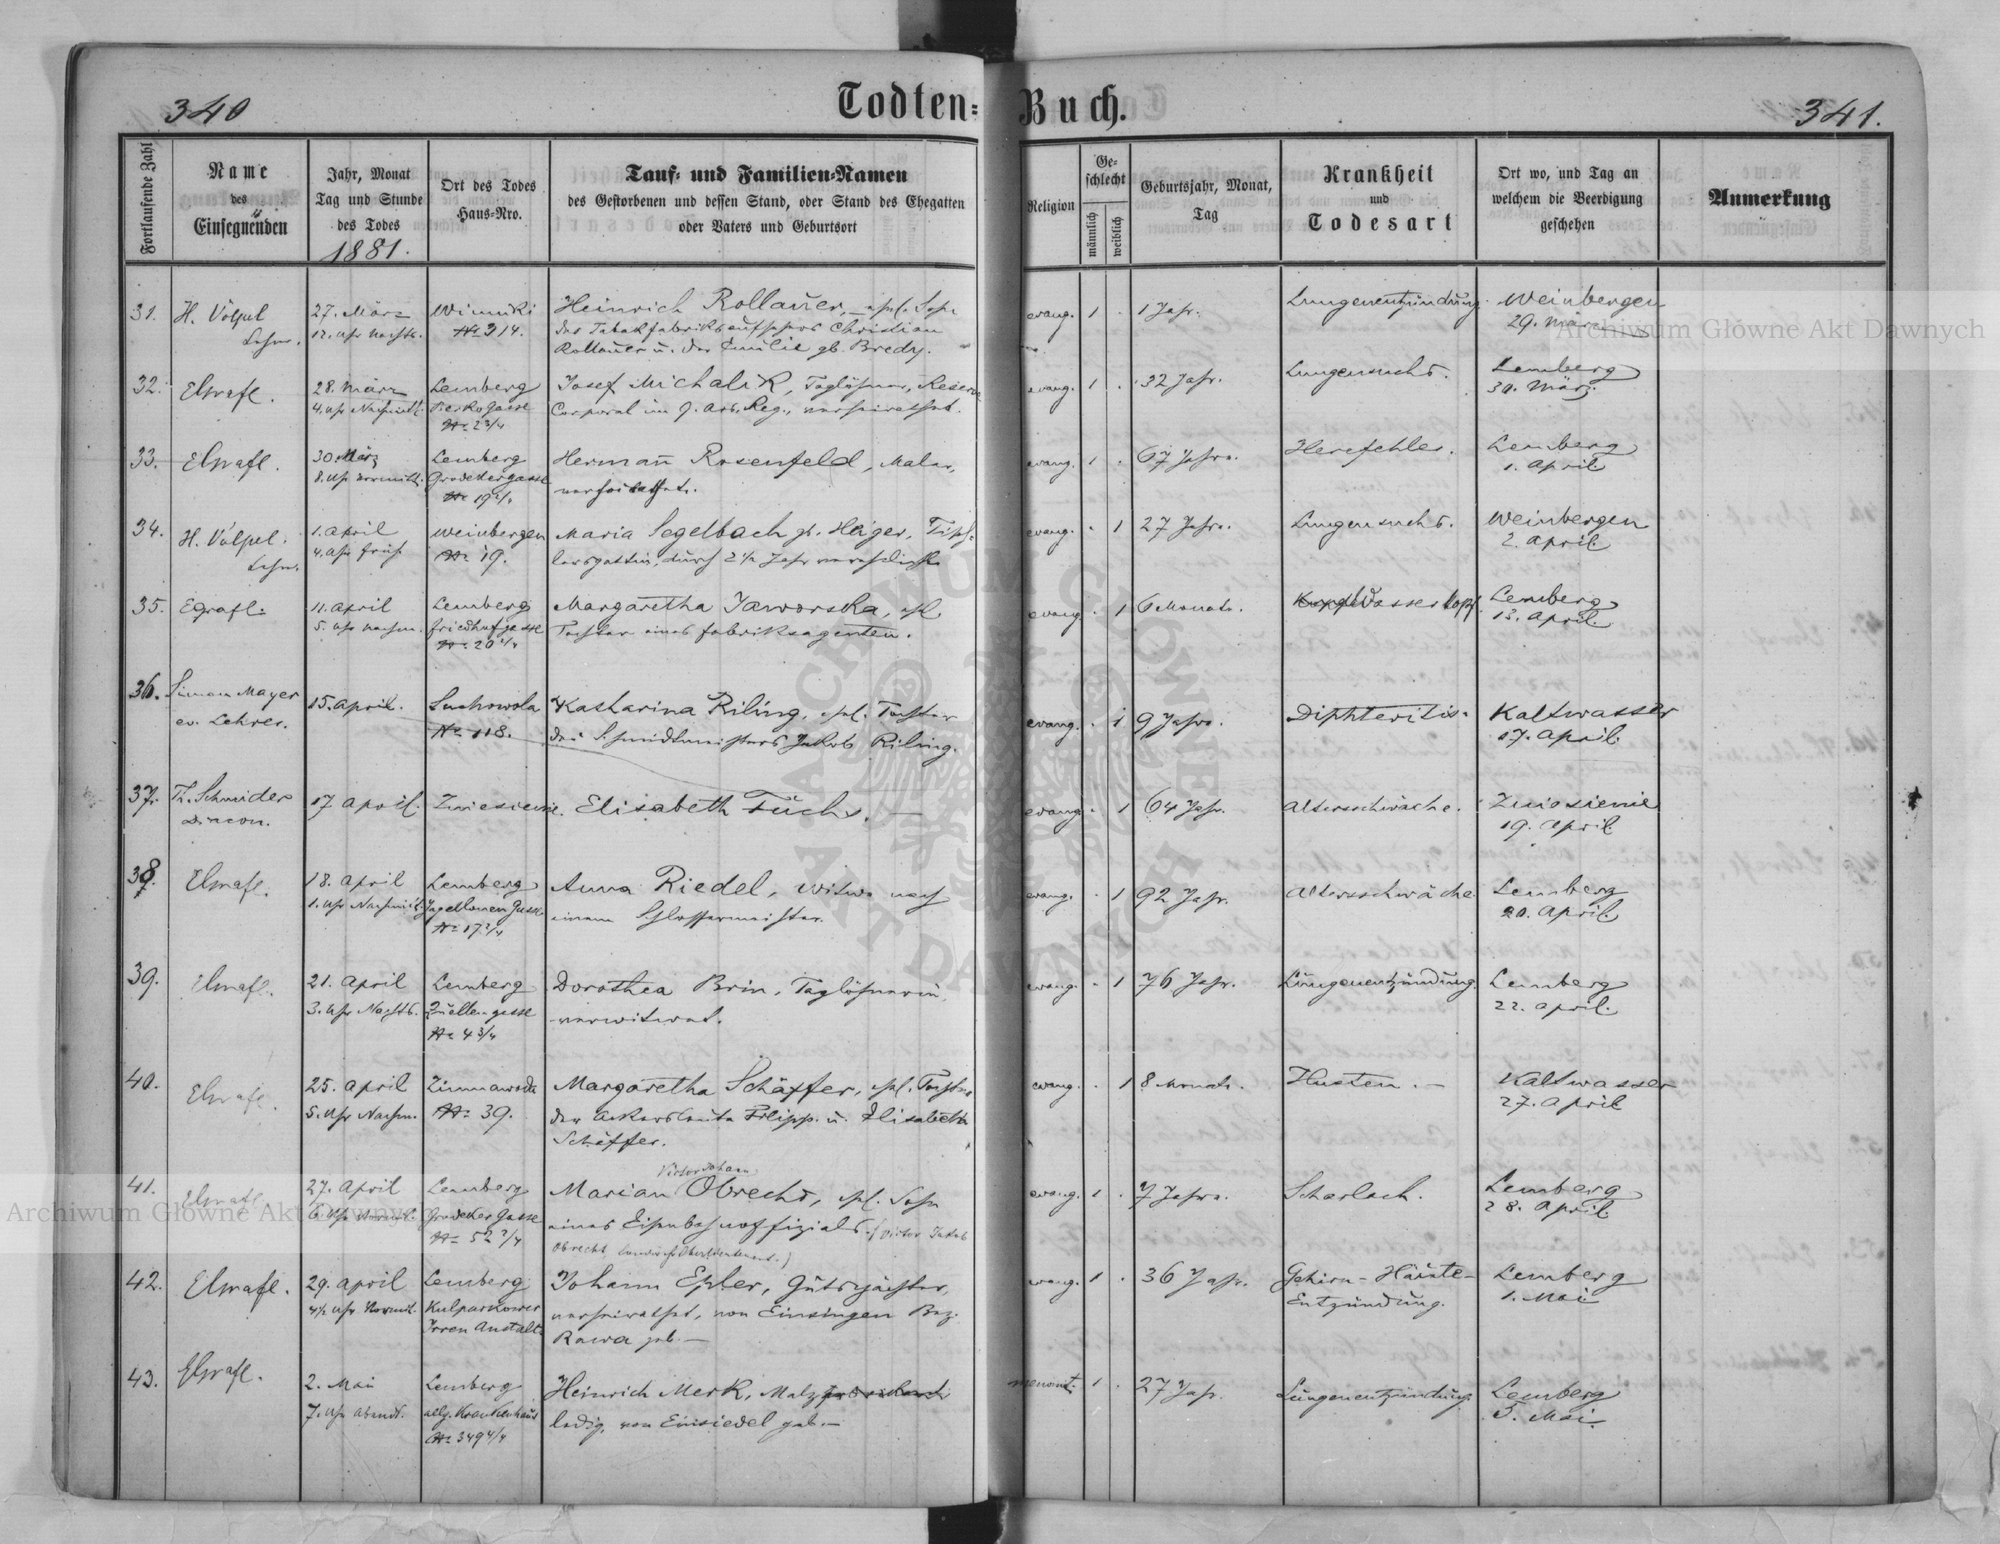 340
Todten-
Buch.
341.
Fortlaufende Zahl
Name
des
Einsegnenden
Jahr, Monat
Tag und Stunde
des Todes
1881.
Ort des Todes
Haus-Nro.
Tauf- und Familien-Namen
des Gestorbenen und dessen Stand, oder Stand des Ehegatten
oder Vaters und Geburtsort
Religion
Ge-
schlecht
männlich
weiblich
Geburtsjahr, Monat,
Tag
Krankheit
und
Todesart
Ort wo, und Tag an
welchem die Beerdigung
geschehen
Anmerkung
31.
H. Völpel
Lehrer.
27. März
12. Uhr Nachts.
Winniki
No 314.
Heinrich Rollauer, ehel. Sohn
des Tabakfabriksaufsehers Christian
Rollauer u. der Emilie gb. Bredy.
evang.
1
1 Jahr.
Lungenentzündung.
Weinbergen
29. März
32.
28. März
4. Uhr Nachmitt.
Lemberg
Gasse
No 2 3/4
Josef Michalik, Taglöhner, Reserve
Corporal im 9. Reg., verheirathet.
evang.
1
32 Jahr.
Lungensucht.
Lemberg
30. März.
33.
30. März
8. Uhr Vormitt.
Lemberg
Grodekergasse
No 19 2/4
Hermann Rosenfeld, Maler,
verheirathet.
evang.
1
67 Jahre.
Herzfehler.
Lemberg
1. April
34.
H. Völpel.
Lehrer.
1. April
4. Uhr früh
Weinbergen
No 19.
Maria Segelbach gb. Heiger, Tisch-
lersgattin, durch 2 1/2 Jahr verehelicht.
evang.
1
27 Jahre.
Lungensucht.
Weinbergen
2. April.
35.
11. April
5. Uhr Nachm.
Lemberg
Friedhofgasse
No 20 4/4
Margaretha Jaworska, ehl.
Tochter eines Fabriksagenten.
evang.
1
6 Monate.
Wasserkopf.
Lemberg
13. April
36.
Simon Mayer
ev. Lehrer.
15. April.
Suchowola
No 118.
Katharina Riling, ehel. Tochter
des Schmidtmeisters Jakob Riling.
evang.
1
9 Jahre.
Diphteritis.
Kaltwasser
17. April.
37.
Th. Schneider
Diacon.
17 April.
Zniesienie.
Elisabeth Fuchs. —
evang.
1
64 Jahr.
Altersschwäche.
Zniesienie
19. April.
38.
18. April
1. Uhr Nachmitt.
Lemberg
Jagellonen Gasse
No 17 2/4
Anna Riedel, Witwe nach
einem Schlossermeister.
evang.
1
92 Jahr.
Altersschwäche
Lemberg
20. April.
39.
21. April
3. Uhr Nachts.
Lemberg
Quellengasse
No 4 3/4
Dorothea Brin, Taglöhnerin,
verwitwet.
evang.
1
76 Jahr.
Lungenentzündung.
Lemberg
22. April.
40.
25. April
5. Uhr Nachm.
Zimnawoda
No 39.
Margaretha Schäffer, ehl. Tochter
der Ackersleute Filipp u. Elisabeth
Schäffer.
evang.
1
8 Monate.
Husten. —
Kaltwasser
27. April
41.
27. April
6. Uhr Vormit.
Lemberg
Grodeker Gasse
No 52 2/4
Victor Johann
Marian Obrecht, ehl. Sohn
eines Eisenbahnoffizials. (Victor Jakob
Obrecht, Oberlieutenant.)
evang.
1
7 Jahre.
Scharlach.
Lemberg
28. April.
42.
29. April
4 1/2 Uhr Vormit.
Lemberg
Kulparkower
Irren Anstalt
Johann Epler, Gutspächter,
verheirathet, von Einsingen Bez.
Rawa geb. —
evang.
1
36 Jahr.
Gehirn-Häute-
Entzündung.
Lemberg
1. Mai
43.
2. Mai
7. Uhr Abends.
Lemberg
allg. Krankenhaus
No 349 4/4
Heinrich Merk,
ledig, von Einsiedel geb. —
menonit.
1
27 Jahr.
Lungenentzündung
Lemberg
5. Mai
Archiwum Główne Akt Dawnych
Archiwum Główne Akt Dawnych
ARCHIWUM GŁÓWNE AKT DAWNYCH